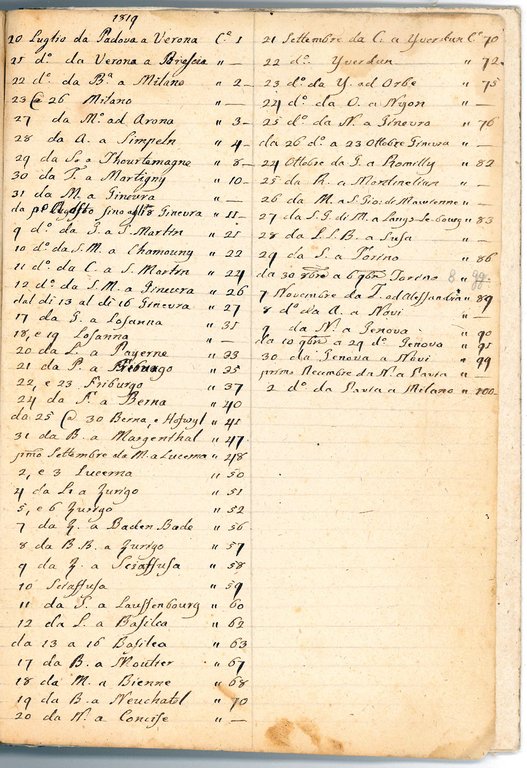 1819
20 Luglio da Padova a Verona C.e 1
21 d.o da Verona a Brescia " —
22 d.o da B.a a Milano " 2 —
23 @ 26 Milano " —
27 da M.o ad Arona " 3 —
28 da A. a Simpeln " 4 —
29 da S. a Thourtemagne " 8 —
30 da T. a Martigny " 10 —
31 da M. a Ginevra " —
da p.o Agosto sino all'8 Ginevra " 11 —
9 d.o da G. a S. Martin " 21
10 d.o da S. M. a Chamouny " 22
11 d.o da C. a S. Martin " 24
12 d.o da S. M. a Ginevra " 26
dal di 13 al di 16 Ginevra " 27
17 da G. a Losanna " 31
18, e 19 Losanna " —
20 da L. a Payerne " 33
21 da P. a Friburgo " 35
22, e 23 Friburgo " 37
24 da F. a Berna " 40
da 25 @ 30 Berna, e Hofwyl " 41
31 da B. a Margenthal " 47
primo Settembre da M. a Lucerna " 48
2, e 3 Lucerna " 50
4 da L. a Zurigo " 51
5, e 6 Zurigo " 52
7 da Z. a Baden Bade " 56
8 da B. B. a Zurigo " 57
9 da Z. a Sciaffusa " 58
10 Sciaffusa " 59
11 da S. a Lauffenbourg " 60
12 da L. a Basilea " 62
da 13 a 16 Basilea " 63
17 da B. a Moutier " 67
18 da M. a Bienne " 68
19 da B. a Neuchatel " 70
20 da N. a Concise " —
21 Settembre da C. a Yverdun C.e 70
22 d.o Yverdun " 72
23 d.o da Y. ad Orbe " 75
24 d.o da O. a Nyon " —
25 d.o da N. a Ginevra " 76
da 26 d.o a 23 Ottobre Ginevra " —
24 Ottobre da G. a Romilly " 82
25 da R. a Montmelian " —
26 da M. a S. Gio. di Maurienne "
27 da S. G. di M. a Lans-le-bourg " 83
28 da L. S. B. a Susa " —
29 da S. a Torino " 86
da 30 8bre a 6 9bre Torino " 8. gg.
7 Novembre da T. ad Alessandria " 89
8 d.o da A. a Novi " —
9 da N. a Genova " 90
da 10 9bre a 29 d.o Genova " 91
30 da Genova a Novi " 99
primo Decembre da N. a Pavia " —
2 d.o da Pavia a Milano " 100